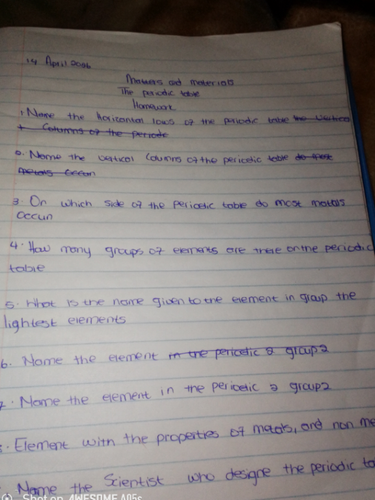 14 April 2026
Matters and materials
The periodic table
Homework
1. Name the horizontal lows of the periodic table the vertical
+ Columns of the periode
2. Name the vertical Column of the periodic table do these
metals occur
3. On which side of the periodic table do most metals
occurs
4. How many groups of elements are there on the periodic
table
5. What is the name given to the element in group the
lightest elements
6. Name the element in the periodic 2 group 2
7. Name the element in the periodic 2 group 2
Element with the properties of metals, and non me
Name the Scientist who designe the periodic ta
Shot on AWESOME A05s